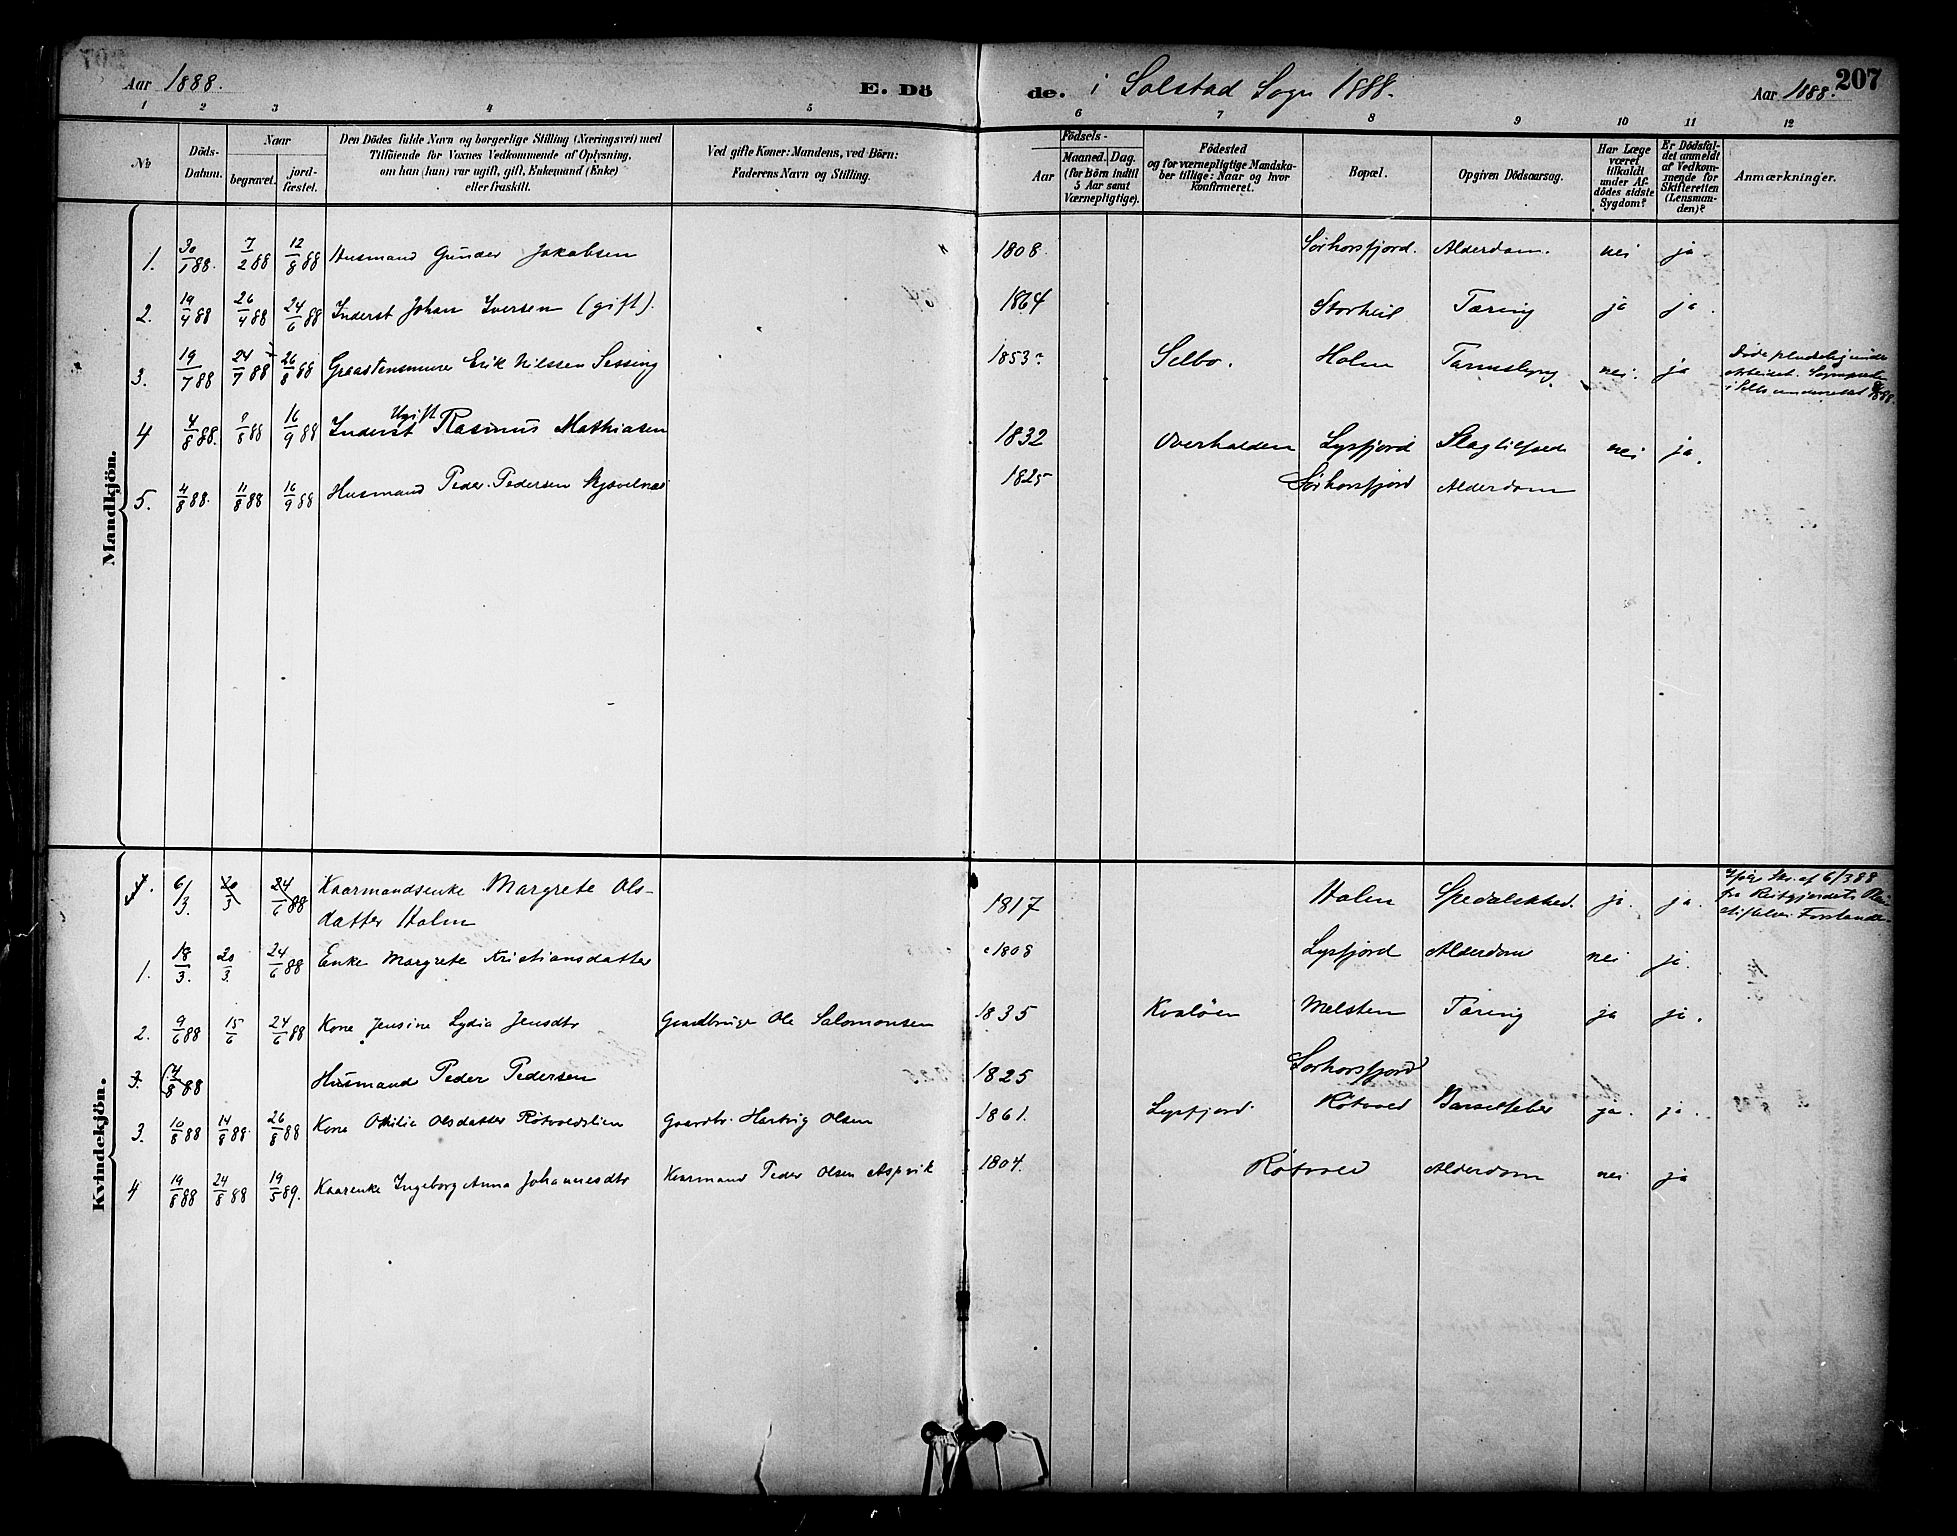 207
Aar 1888. E. Dö de. i Solstad Sogn 1888. Aar 1888.
1 2 3 4 5 6 7 8 9 10 11 12
No
Döds-
Datum.
Naar
begravet.
jord-
fæstet.
Den Dödes fulde Navn og borgerlige Stilling (Næringsvei) med
Tilföiende for Voxnes Vedkommende af Oplysning,
om han (hun) var ugift, gift, Enkemand (Enke)
eller fraskilt.
Ved gifte Koner: Mandens, ved Börn:
Faderens Navn og Stilling.
Födsels-
Aar
Maaned. Dag.
(for Börn indtil
5 Aar samt
Værnepligtige).
Födested
og for værnepligtige Mandska-
ber tillige: Naar og hvor
konfirmeret.
Bopæl.
Opgiven Dödsaarsag.
Har Læge
været
tilkaldt
under Af-
dödes sidste
Sygdom?
Er Dödsfal-
det anmeldt
af Vedkom-
mende for
Skifteretten
(Lensman-
den)?
Anmærkninger.
Mandkjön.
1. 30/1 88. 7/2 88 12/8 88 Husmand Gunder Jakobsen " 1808. Sörhorsfjord. Alderdom. nei ja
2. 19/4 88 26/4 88 24/6 88 Inderst Johan Iversen (gift). 1864 Storheil Tæring ja ja.
3. 19/7 88 24/7 88 26/8 88 Graastensmurer Erik Nilssen Sessing 1853 Selbo. Holm nei. ja Döde pludselig under
Arbeidet. Sognepresten
i Selbo underrettet
4 4/8 88. 88 16/9 88 Inderst Ugift Rasmus Mathiasen 1832 Overhalden Lysfjord Slagtilfælde nei ja.
5. 4/8 88. 11/8 88 16/9 88 Husmand Peder Pedersen 1825 Sörhorsfjord Alderdom
Kvindekjön.
1. 6/3. 20/3 24/6 88 Kaarmandsenke Margrete Ols-
datter Holm 1817 Holm Spedalskhed. ja. ja. af 6/3 88
fra Reitgjerdets Plei
estiftelses Forstander
1. 18/3. 20/3. 24/6 88 Enke Margrete Kristiansdatter 1808 Lysfjord Alderdom nei ja.
2. 9/6 88 15/6 24/6 88 Kone Jensine Lydia Jensdtr Gaardbruger Ole Salomonsen 1835 Kvalöen Melstein Tæring ja ja.
3. 4/8 88 Husmand Peder Pedersen 1825 Sörhorsfjord
3. 10/8 88 14/8 88. 26/8 88 Kone Othilie Olsdatter Rötvoldslien Gaardbr. Hartvig Olsen 1861. Lysfjord. Rötvold Barselfeber ja. ja.
4 19/8 88 24/8 88 19/5 89. Kaarenke Ingeborg Anna Johannesdtr Kaarmand Peder Olsen Aspvik 1804. Rötvold Alderdom nei ja